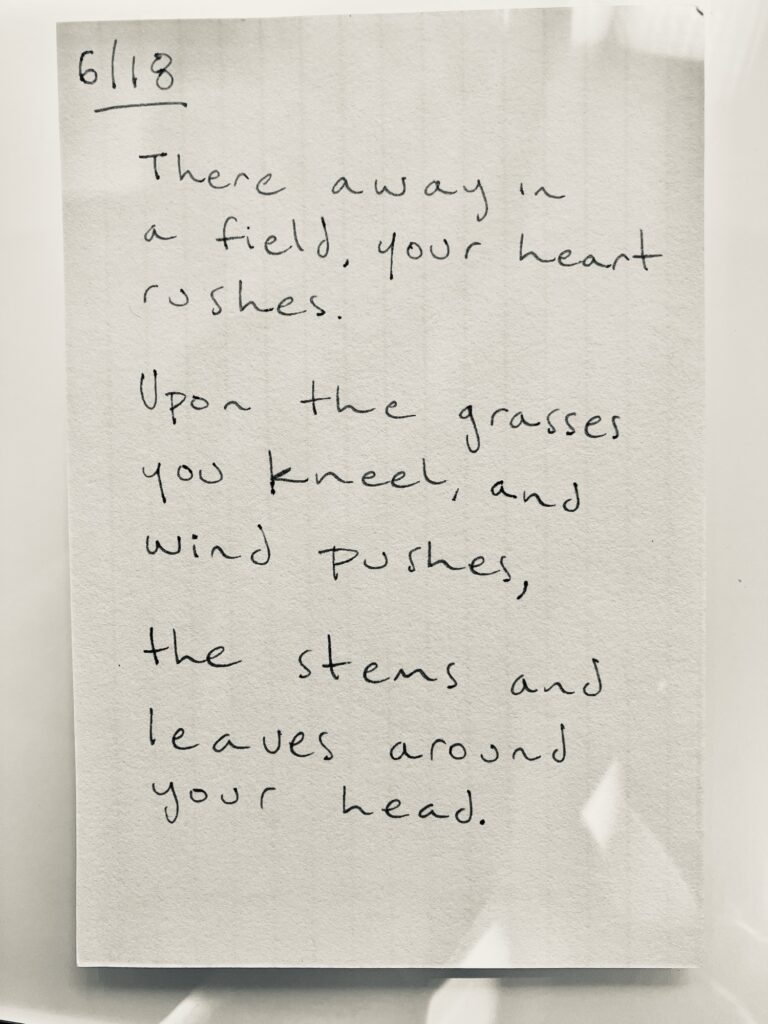 6/18
There away in
a field, your heart
rushes.
Upon the grasses
you kneel, and
wind pushes,
the stems and
leaves around
your head.